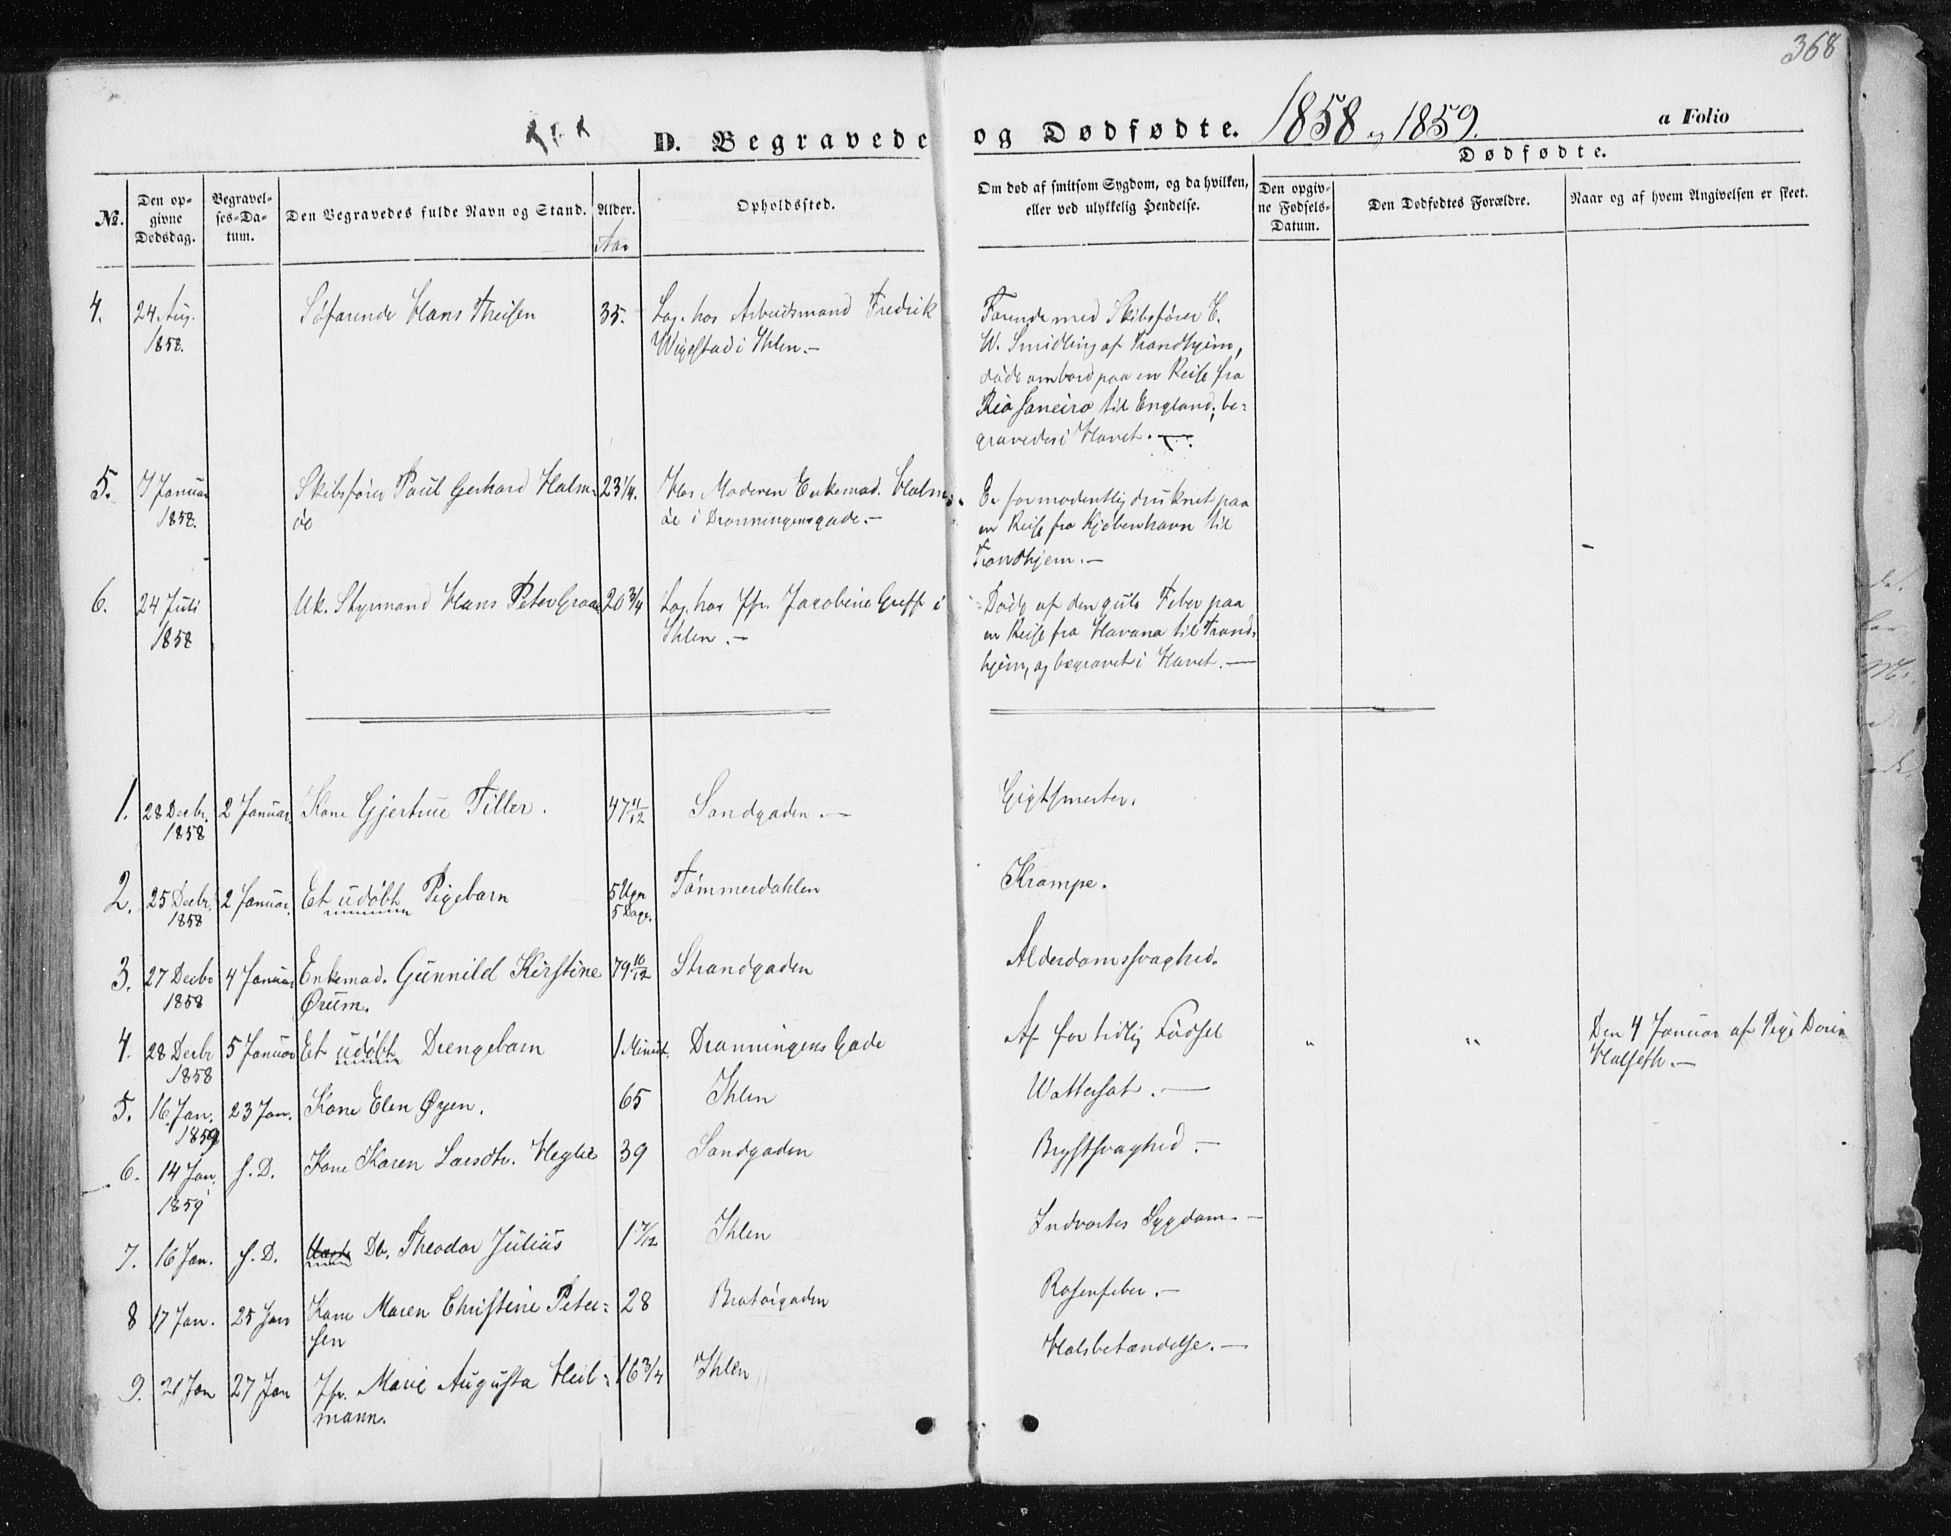 368
D. Begravede og Dødfødte. 1858 og 1859. a Folio
Dødfødte.
No. Den opgivne Dødsdag. Begravelses-Datum. Den Begravedes fulde Navn og Stand. Alder. Opholdssted. Om død af smitsom Sygdom, og da hvilken, eller ved ulykkelig Hendelse. Den opgivne Fødsels-Datum. Den Dødfødtes Forældre. Naar og af hvem Angivelsen er skeet.
Aar
4. 24 Aug. 1858. Søfarende Hans Theisen 35. Log. hos Arbeidsmand Fredrik
Wigestad i Ihlen.—
Farende med Skibsfører C.
W. Smidling af Trondhjem,
døde ombord paa en Reise fra
Rio Janeiro til England, be-
gravedes i Havet.—
5. 7 Januar 1858. Skibsfører Paul Gerhard Halm-
øe 23 1/4. Hos Moderen Enkemad. Halm-
øe i Dronningensgade.—
Er formodentlig druknet paa
en Reise fra Kjøbenhavn til
Trondhjem.—
6. 24 Juli 1858 Uk. Styrmand Hans Peter Graae 20 3/4 Log. hos Jfr. Jacobine Greff i
Ihlen.—
Døde af den gule Feber paa
en Reise fra Havana til Trond-
hjem, og begravet i Havet.—
1. 28 Decbr. 1858 2 Januar. Kone Gjertrue Tiller. 47 11/12 Sandgaden.— Gigtsmerter.
2. 25 Decbr. 1858 2 Januar. Et udøbt Pigebarn 5 Ugr 5 Dage. Tømmerdahlen Krampe.
3. 27 Decbr 1858 4 Januar Enkemad. Gunnild Kirstine
Ørum. 79 10/12 Strandgaden Alderdomssvaghed.
4. 28 Decbr 1858 5 Januar Et udøbt Drengebarn 1 Minut. Dronningens Gade Af for tidlig Fødsel " " Den 4 Januar af Pige Dorie
Halseth.—
5. 16 Jan. 1859 23 Jan. Kone Elen Øyen. 65 Ihlen Wattersot.—
6. 14 Jan. 1859 s. D. Kone Karen Larsdtr. Heglie 39 Sandgaden Brystsvaghed.—
7. 16 Jan. s. D. Db. Theodor Julius 1 7/12 Ihlen Indvortes Sygdom.—
8 17 Jan. 25 Jan Kone Maren Christine Peter-
sen 28 Bratørgaden Rosenfeber.—
9. 21 Jan 27 Jan Jfr. Marie Augusta Heil-
mann. 16 3/4 Ihlen Halsbetændelse.—